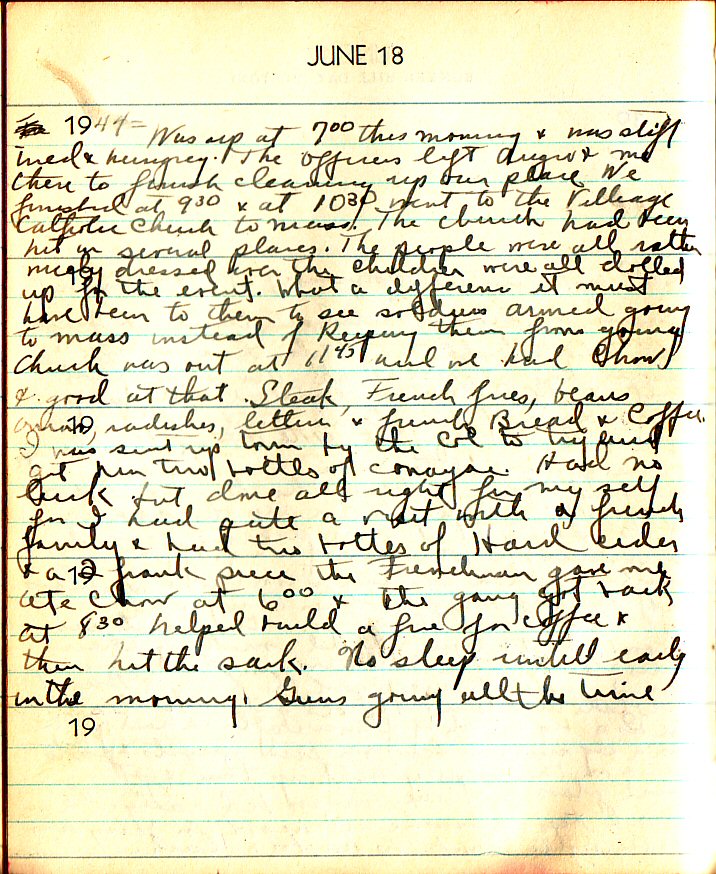 JUNE 18
1944 = Was up at 7⁰⁰ this morning & was stiff
tired & hungrey. The officers left & me
there to finish cleaning up our place We
finished at 9³⁰ & at 10³⁰ went to the Villeage
Catholic Church to mass. The church had been
hit in several places. The people were all rather
nicely dressed over the children were all dolled
up for the event. What a difference it must
have been to them to see soldiers armed going
to mass instead of Keeping them from going
Church was out at 11⁴⁵ and we had Chow
& good at that. Steak, French fries, beans
onions, radishes, lettuce & french Bread & Coffee.
19
I was sent up town by the Col to try and
get him two bottles of Had no
luck but done all right for my self
for I had quite a visit with a french
family & had two bottles of Hard cider
& a 2 frank piece the Frenchman gave me
19
ate Chow at 6⁰⁰ & the gang got back
at 8³⁰ helped build a fire for coffee &
then hit the sack. No sleep untill early
in the morning. Guns going all the time
19